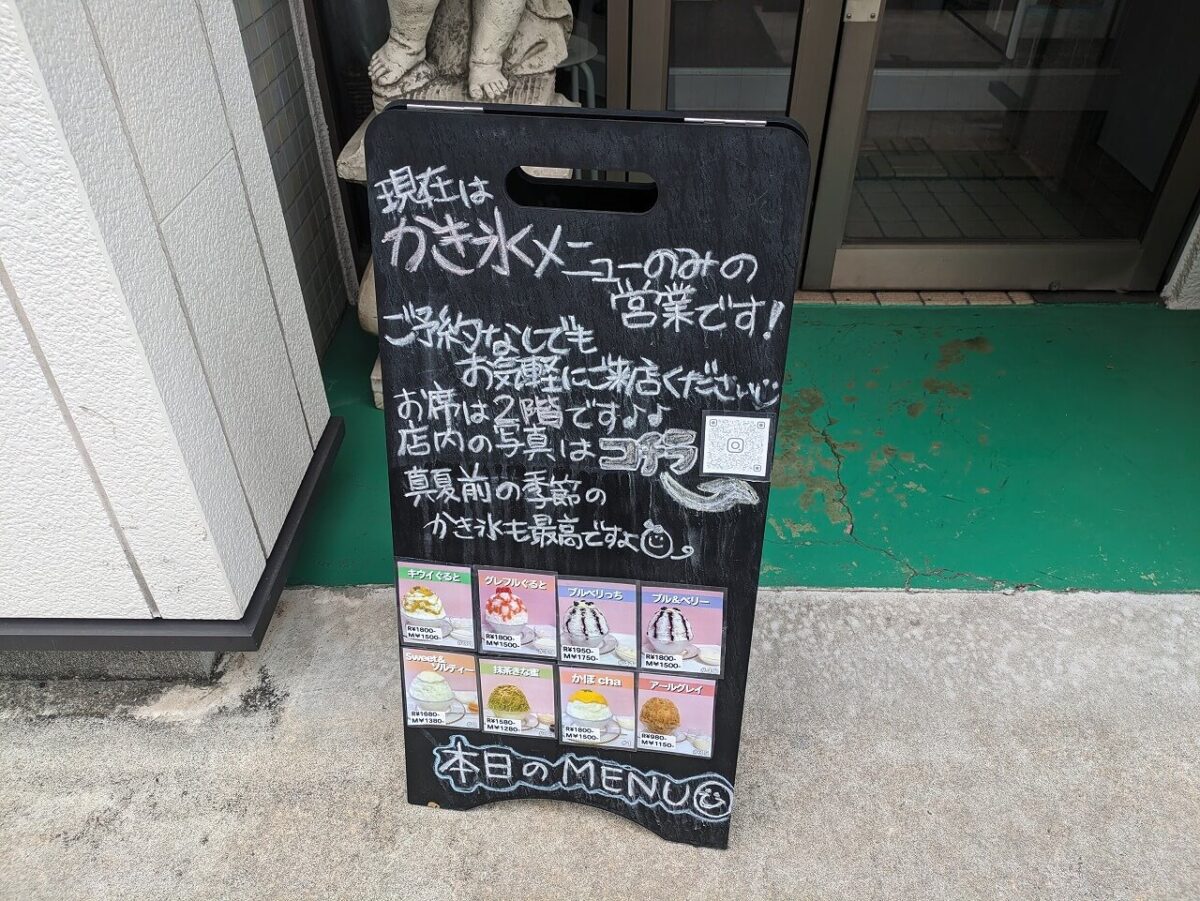 現在は
かき氷メニューのみの
営業です!
ご予約なしでも
お気軽にご来店ください
お席は2階です♪♪
店内の写真はコチラ
真夏前の季節の
かき氷も最高ですよ
キウイぐると
R¥1800-
M¥1500-
グレフルぐると
R¥1800-
M¥1500-
ブルベリっち
R¥1950-
M¥1750-
ブル&ベリー
R¥1800-
M¥1500-
Sweet&
ソルティー
R¥1680-
M¥1380-
抹茶きな蜜
R¥1580-
M¥1280-
かぼcha
R¥1800-
M¥1500-
アールグレイ
R¥980-
M¥1150-
本日のMENU